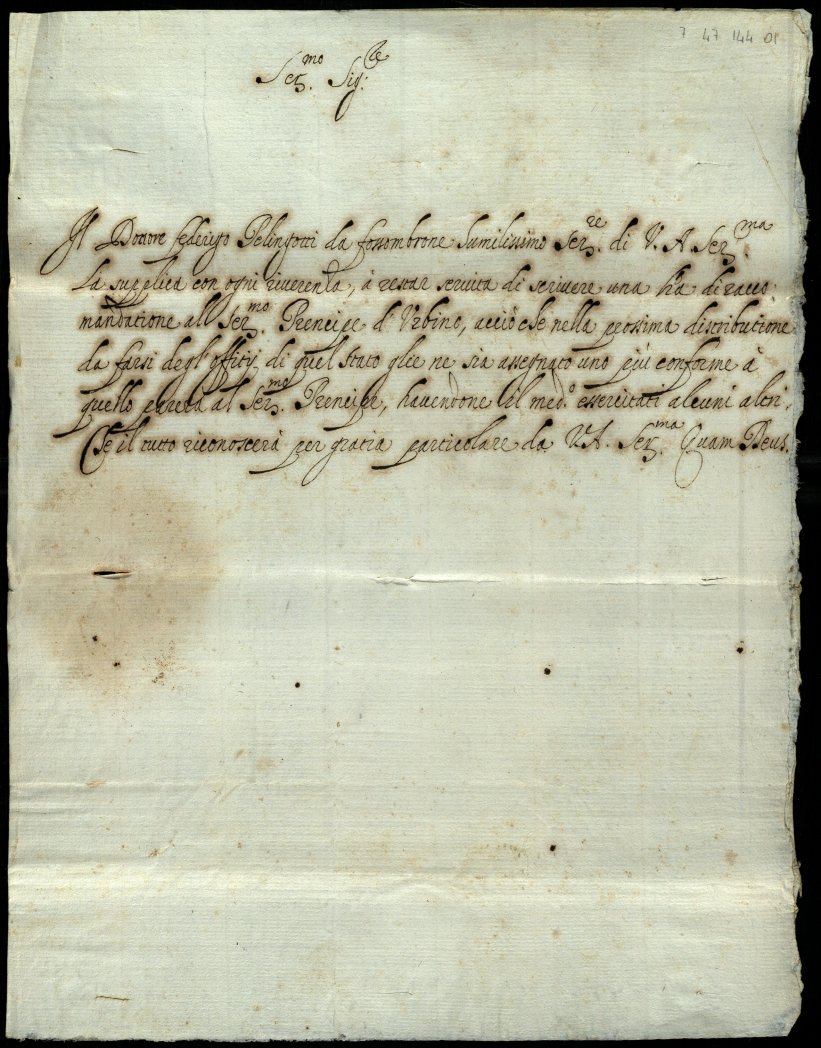 7 47 144 01
Ser.mo Sig.re
Il Dottore federigo Pelingotti da fossombrone humilissimo Ser.re di V. A Ser.ma
La supplica con ogni riverenza, à restar servita di scrivere una lra di racco
mandatione all Ser.mo Prencipe d'Urbino, acciò che nella prossima distributione
da farsi degl'offitij di quel stato glie ne sia assegnato uno più conforme à
quello parerà al Ser.mo Prencipe, havendone il med.o essercitati alcuni altri.
Che il tutto riconoscerà per gratia particolare da V.A. Ser.ma Quam Deus.